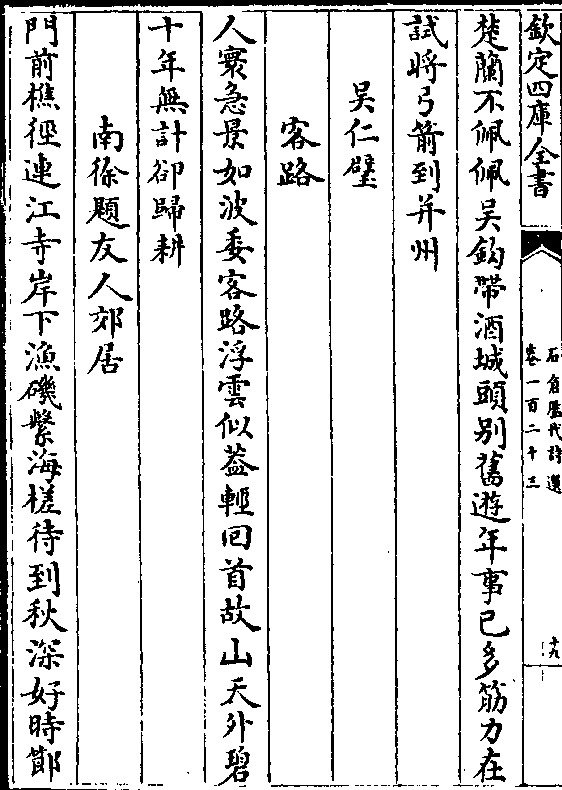 欽定四庫全書
石倉歷代詩選
卷一百二十三
十九
楚蘭不佩佩吳鈎帶酒城頭别舊遊年事已多筋力在
試將弓箭到并州
吳仁璧
客路
人寰急景如波委客路浮雲似葢輕回首故山天外碧
十年無計卻歸耕
南徐題友人郊居
門前樵徑連江寺岸下漁磯繫海槎待到秋深好時節